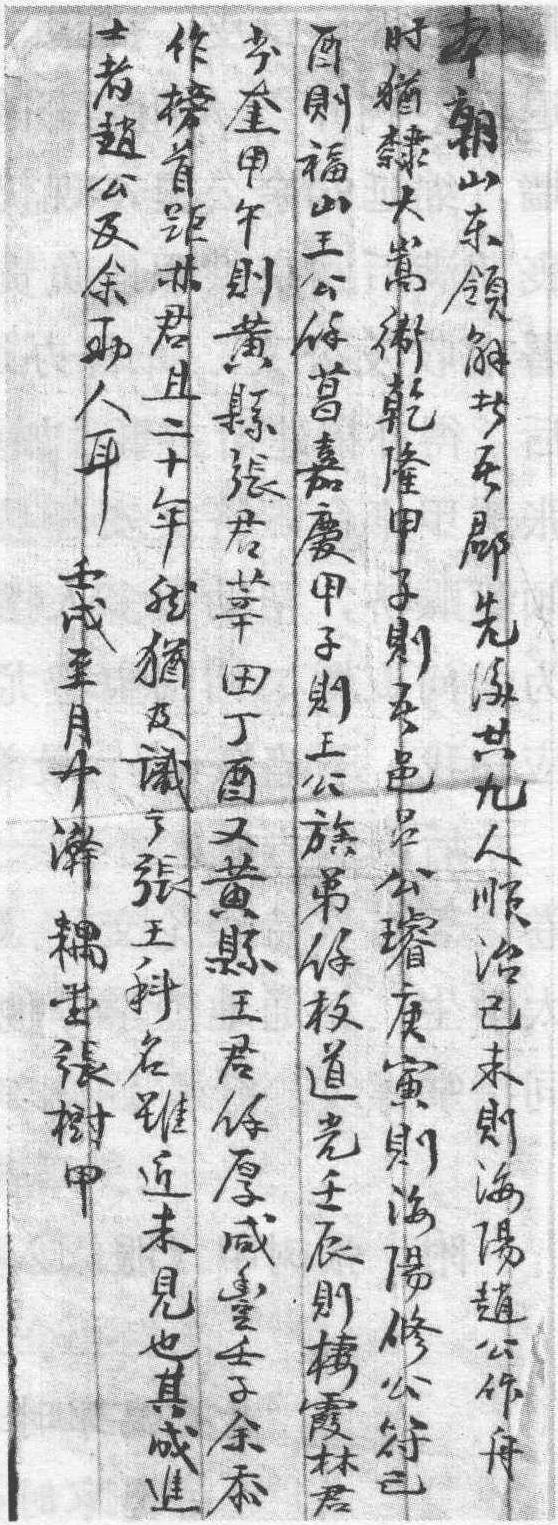 本朝山东領解者吾郡先後共九人順治己未則海陽趙公作舟
时猶隸大嵩衛乾隆甲子則吾邑呂公璿庚寅則海陽修公符己
酉則福山王公余菖嘉慶甲子則王公族弟余枚道光壬辰則棲霞林君
步奎甲午則黃縣張君莘田丁酉又黃縣王君余厚咸豊壬子余忝
作榜首距林君且二十年然猶及識之張王科名雖近未見也其成進
士者趙公及余两人耳
壬戌至月中澣耦堂張樹甲